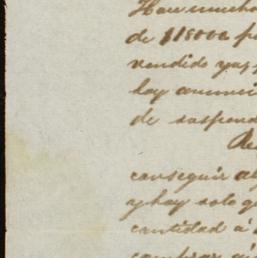 Han mucho
de $18000 p
vendido ya,
hoy anunci
de suspend
Re
conseguir al
y hay solo q
cantidad á
comprar